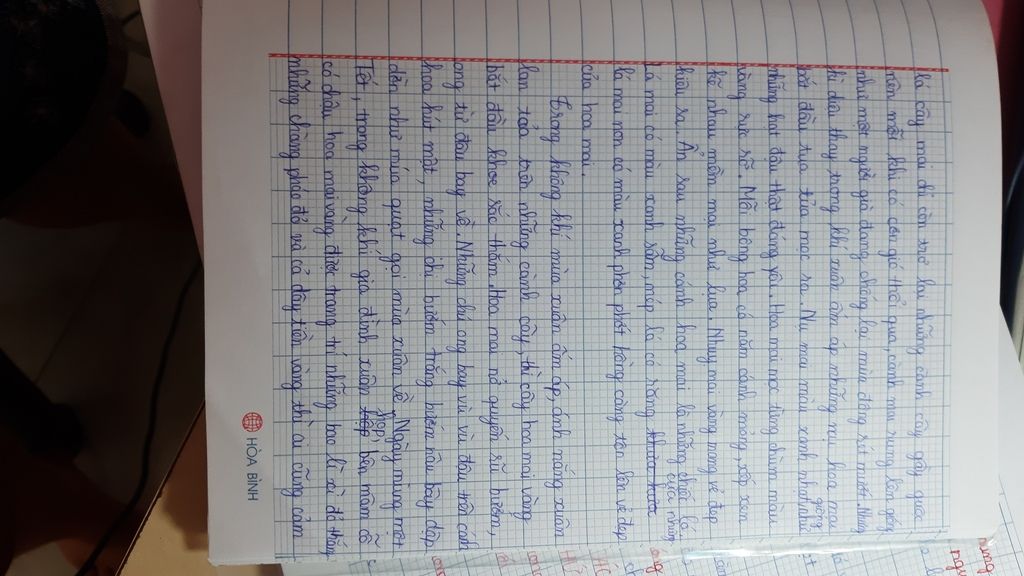 lá cây mai chỉ còn trơ lại những cành cây gầy guộc
nên mỗi khi có cơn gió thổi qua, cành mai rung lên giống
như một người già đang chống lại mùa đông rét mướt. Nhưng
khi đấu thay trong khí xuân ấm áp những nụ hoa mai
bắt đầu tua tủa mọc ra. Nụ mai màu xanh nhạt như
giống
những hạt đậu thật đáng yêu. Hoa mai mọc từng chùm màu
vàng rực rỡ. Mỗi bông hoa có năm cánh mỏng xếp xen
kẽ nhau mềm mại như lụa. Nhụy mai vàng mang vẻ đẹp
kiêu sa. Ẩn sau những cánh hoa mai là những chiếc lá.
của những
Lá mai có màu xanh sẫm, mép lá có răng
lá mai non có màu xanh phơn phớt hồng càng tôn lên vẻ đẹp
của hoa mai.
Trong không khí mùa xuân ấm áp, ánh nắng xuân
lan tỏa trên những cành cây, thì cây hoa mai vàng
bắt đầu khoe sắc thắm. Hoa mai nở quyến rũ bướm,
ong từ đâu bay về. Những chú ong bay vù vù đậu trên cánh
hoa hút mật, những chị bướm trắng bướm nâu bay dập
dờn như múa quạt gọi mùa xuân về. Ngày mùng một
Tết, trong không khí gia đình xuân bên mâm cỗ
họp
có chậu hoa mai vàng được trang trí những bao lì xì đỏ thắm,
những chàng pháo đỏ và có đầy tiền vàng thì ai cũng cảm
HÒA BÌNH